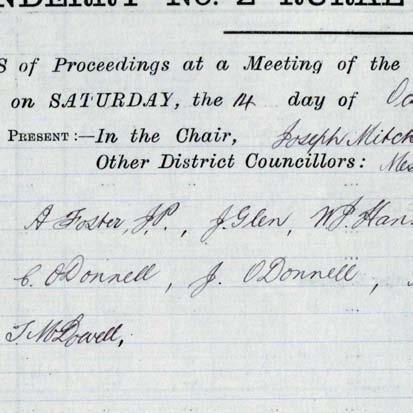 NDERRY No. 2 RURAL
S of Proceedings at a Meeting of the
on SATURDAY, the 14 day of Oc
PRESENT:—In the Chair, Joseph Mitch
Other District Councillors: Mes
A Foster, J.P., J. Glen, W.J. Han
C. O'Donnell, J. O'Donnell,
T McDowell,